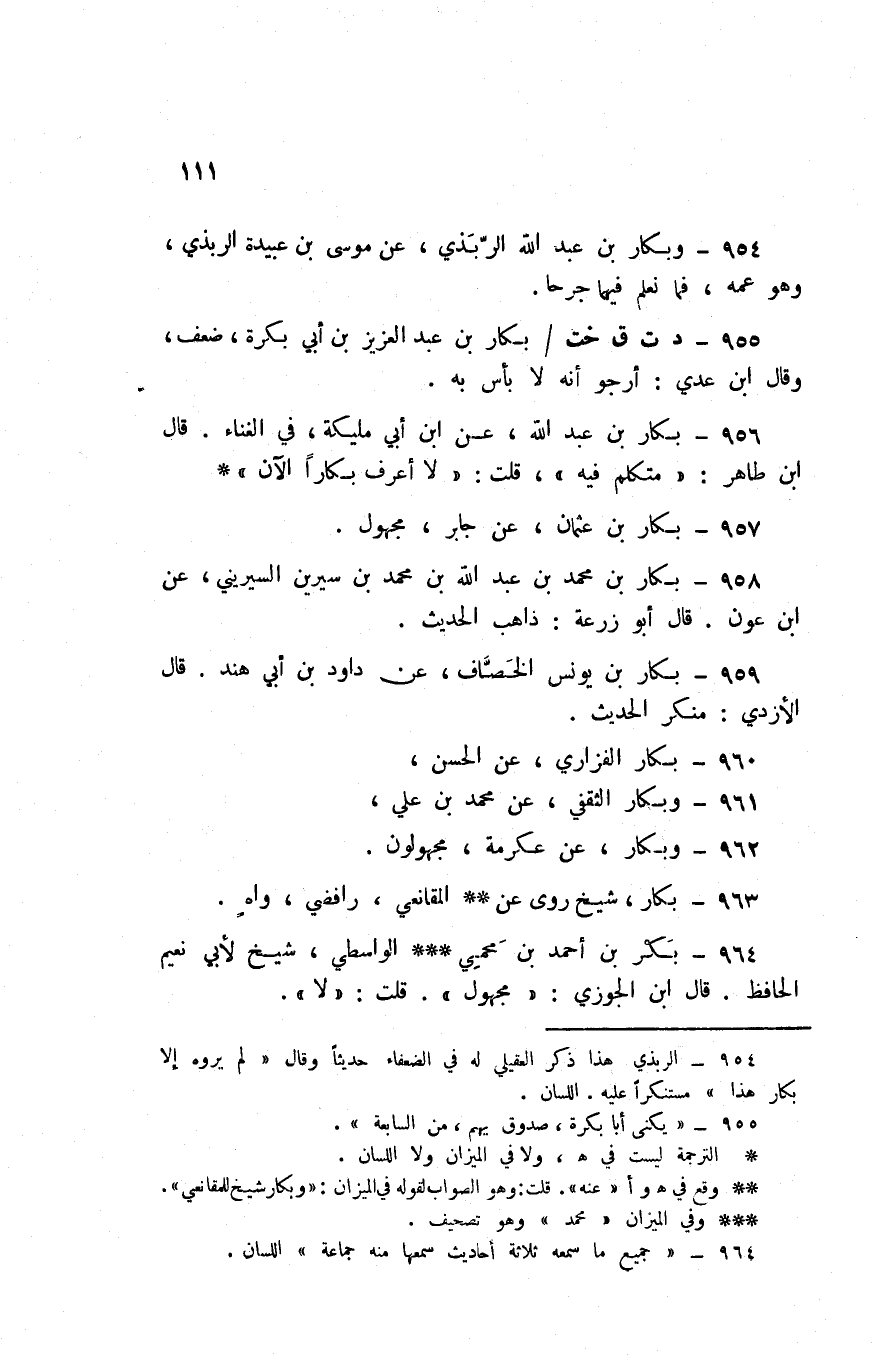 ١١١
٩٥٤ – وبكار بن عبد الله الرَّبَذي ، عن موسى بن عبيدة الربذي ،
وهو عمه ، فما نعلم فيهما جرحا .
٩٥٥ – د ت ق خت / بكار بن عبد العزيز بن أبي بكرة ، ضعف ،
وقال ابن عدي : أرجو أنه لا بأس به .
٩٥٦ – بكار بن عبد الله ، عن ابن أبي مليكة ، في الغناء . قال
ابن طاهر : « متكلم فيه » ، قلت : « لا أعرف بكاراً الآن » *
٩٥٧ – بكار بن عثمان ، عن جابر ، مجهول .
٩٥٨ – بكار بن محمد بن عبد الله بن محمد بن سيرين السيريني ، عن
ابن عون . قال أبو زرعة : ذاهب الحديث .
٩٥٩ – بكار بن يونس الخَصَّاف ، عن داود بن أبي هند . قال
الأزدي : منكر الحديث .
٩٦٠ – بكار الفزاري ، عن الحسن ،
٩٦١ – وبكار الثقفي ، عن محمد بن علي ،
٩٦٢ – وبكار ، عن عكرمة ، مجهولون .
٩٦٣ – بكار ، شيخ روى عن ** المقانعي ، رافضي ، واهٍ .
٩٦٤ – بَكْر بن أحمد بن مَحميي *** الواسطي ، شيخ لأبي نعيم
الحافظ . قال ابن الجوزي : « مجهول » . قلت : « لا » .
٩٥٤ – الربذي هذا ذكر العقيلي له في الضعفاء حديثاً وقال « لم يروه إلا
بكار هذا » مستنكراً عليه . اللسان .
٩٥٥ – « يكنى أبا بكرة ، صدوق يهم ، من السابعة » .
* الترجمة ليست في ه ، ولا في الميزان ولا اللسان .
** وقع في ه و أ « عنه » . قلت : وهو الصواب لقوله في الميزان : « وبكار شيخ للمقانعي » .
*** وفي الميزان « محمد » وهو تصحيف .
٩٦٤ – « جميع ما سمعه ثلاثة أحاديث سمعها منه جماعة » اللسان .